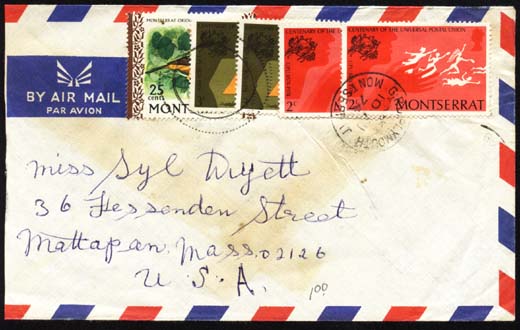 MONTSERRAT ORIOLE
CENTENARY OF THE
CENTENARY OF THE UNIVERSAL POSTAL UNION
25
cents
MONT
2c
MONTSERRAT
PLYMOUTH
BY AIR MAIL
PAR AVION
Miss Syl Dyett
36 Fessenden Street
Mattapan, Mass. 02126
U. S. A.
100